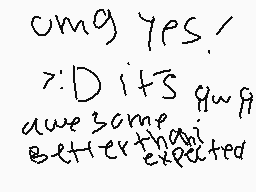 omg yes!
>:D it's qwq
awesome
better than i
expected